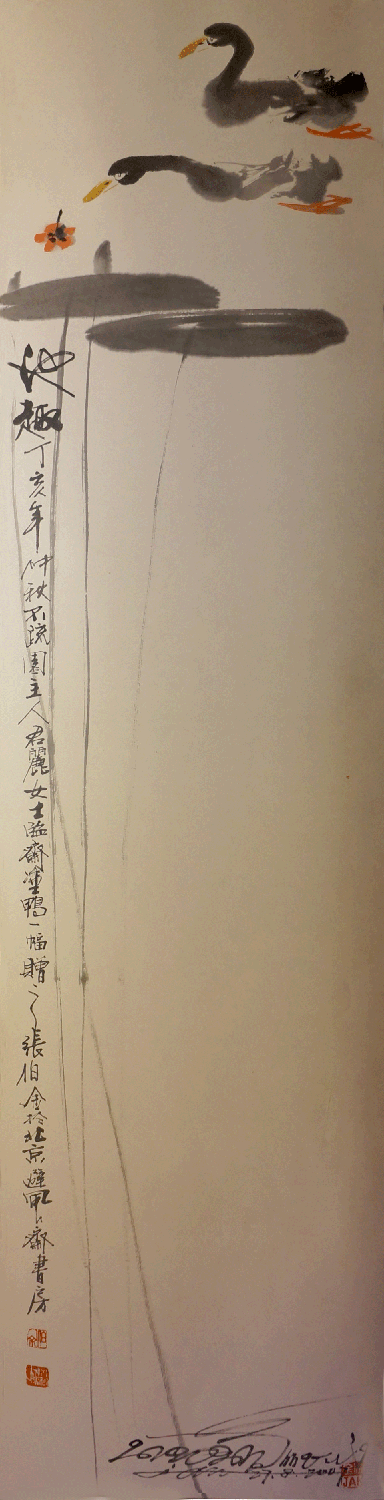 池趣
丁亥年仲秋不疏園主人君麗女士臨齋塗鴨一幅贈之張伯金於北京避風齋書房